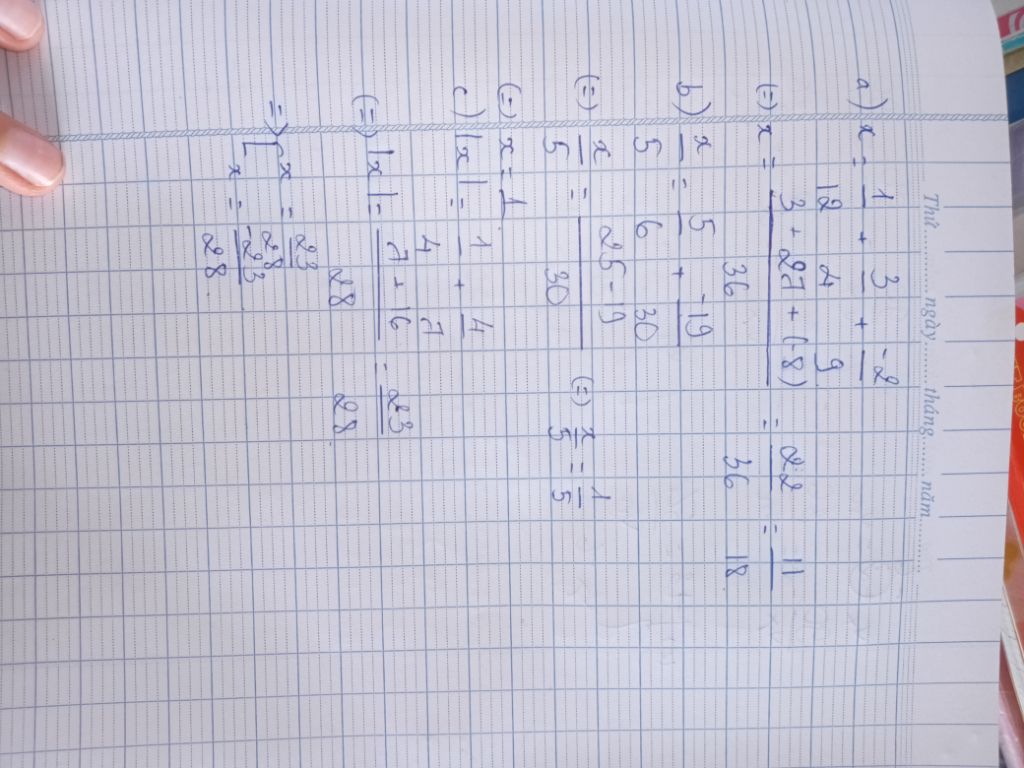 Thứ ........ ngày ........ tháng ........ năm ........
a) x = 1/12 + 3/4 + -2/9
(=) x = 3 + 27 + (-8)/36 = 22/36 = 11/18
b) x/5 = 5/6 + -19/30
(=) x/5 = 25 - 19/30 (=) x/5 = 1/5
(=) x = 1
c) |x| = 1/4 + 4/7
(=) |x| = 7 + 16/28 = 23/28
=> [ x = 23/28
x = -23/28